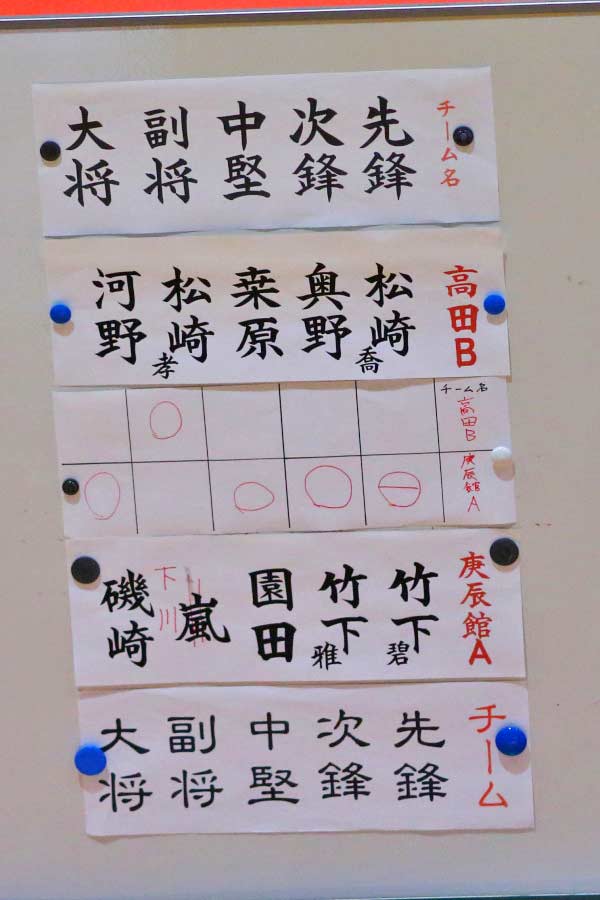 チーム名
先鋒
次鋒
中堅
副将
大将
高田B
松崎喬
奥野
桒原
松崎孝
河野
チーム名
高田B
庚辰館A
庚辰館A
竹下碧
竹下雅
園田
嵐
下川
磯崎
チーム
先鋒
次鋒
中堅
副将
大将